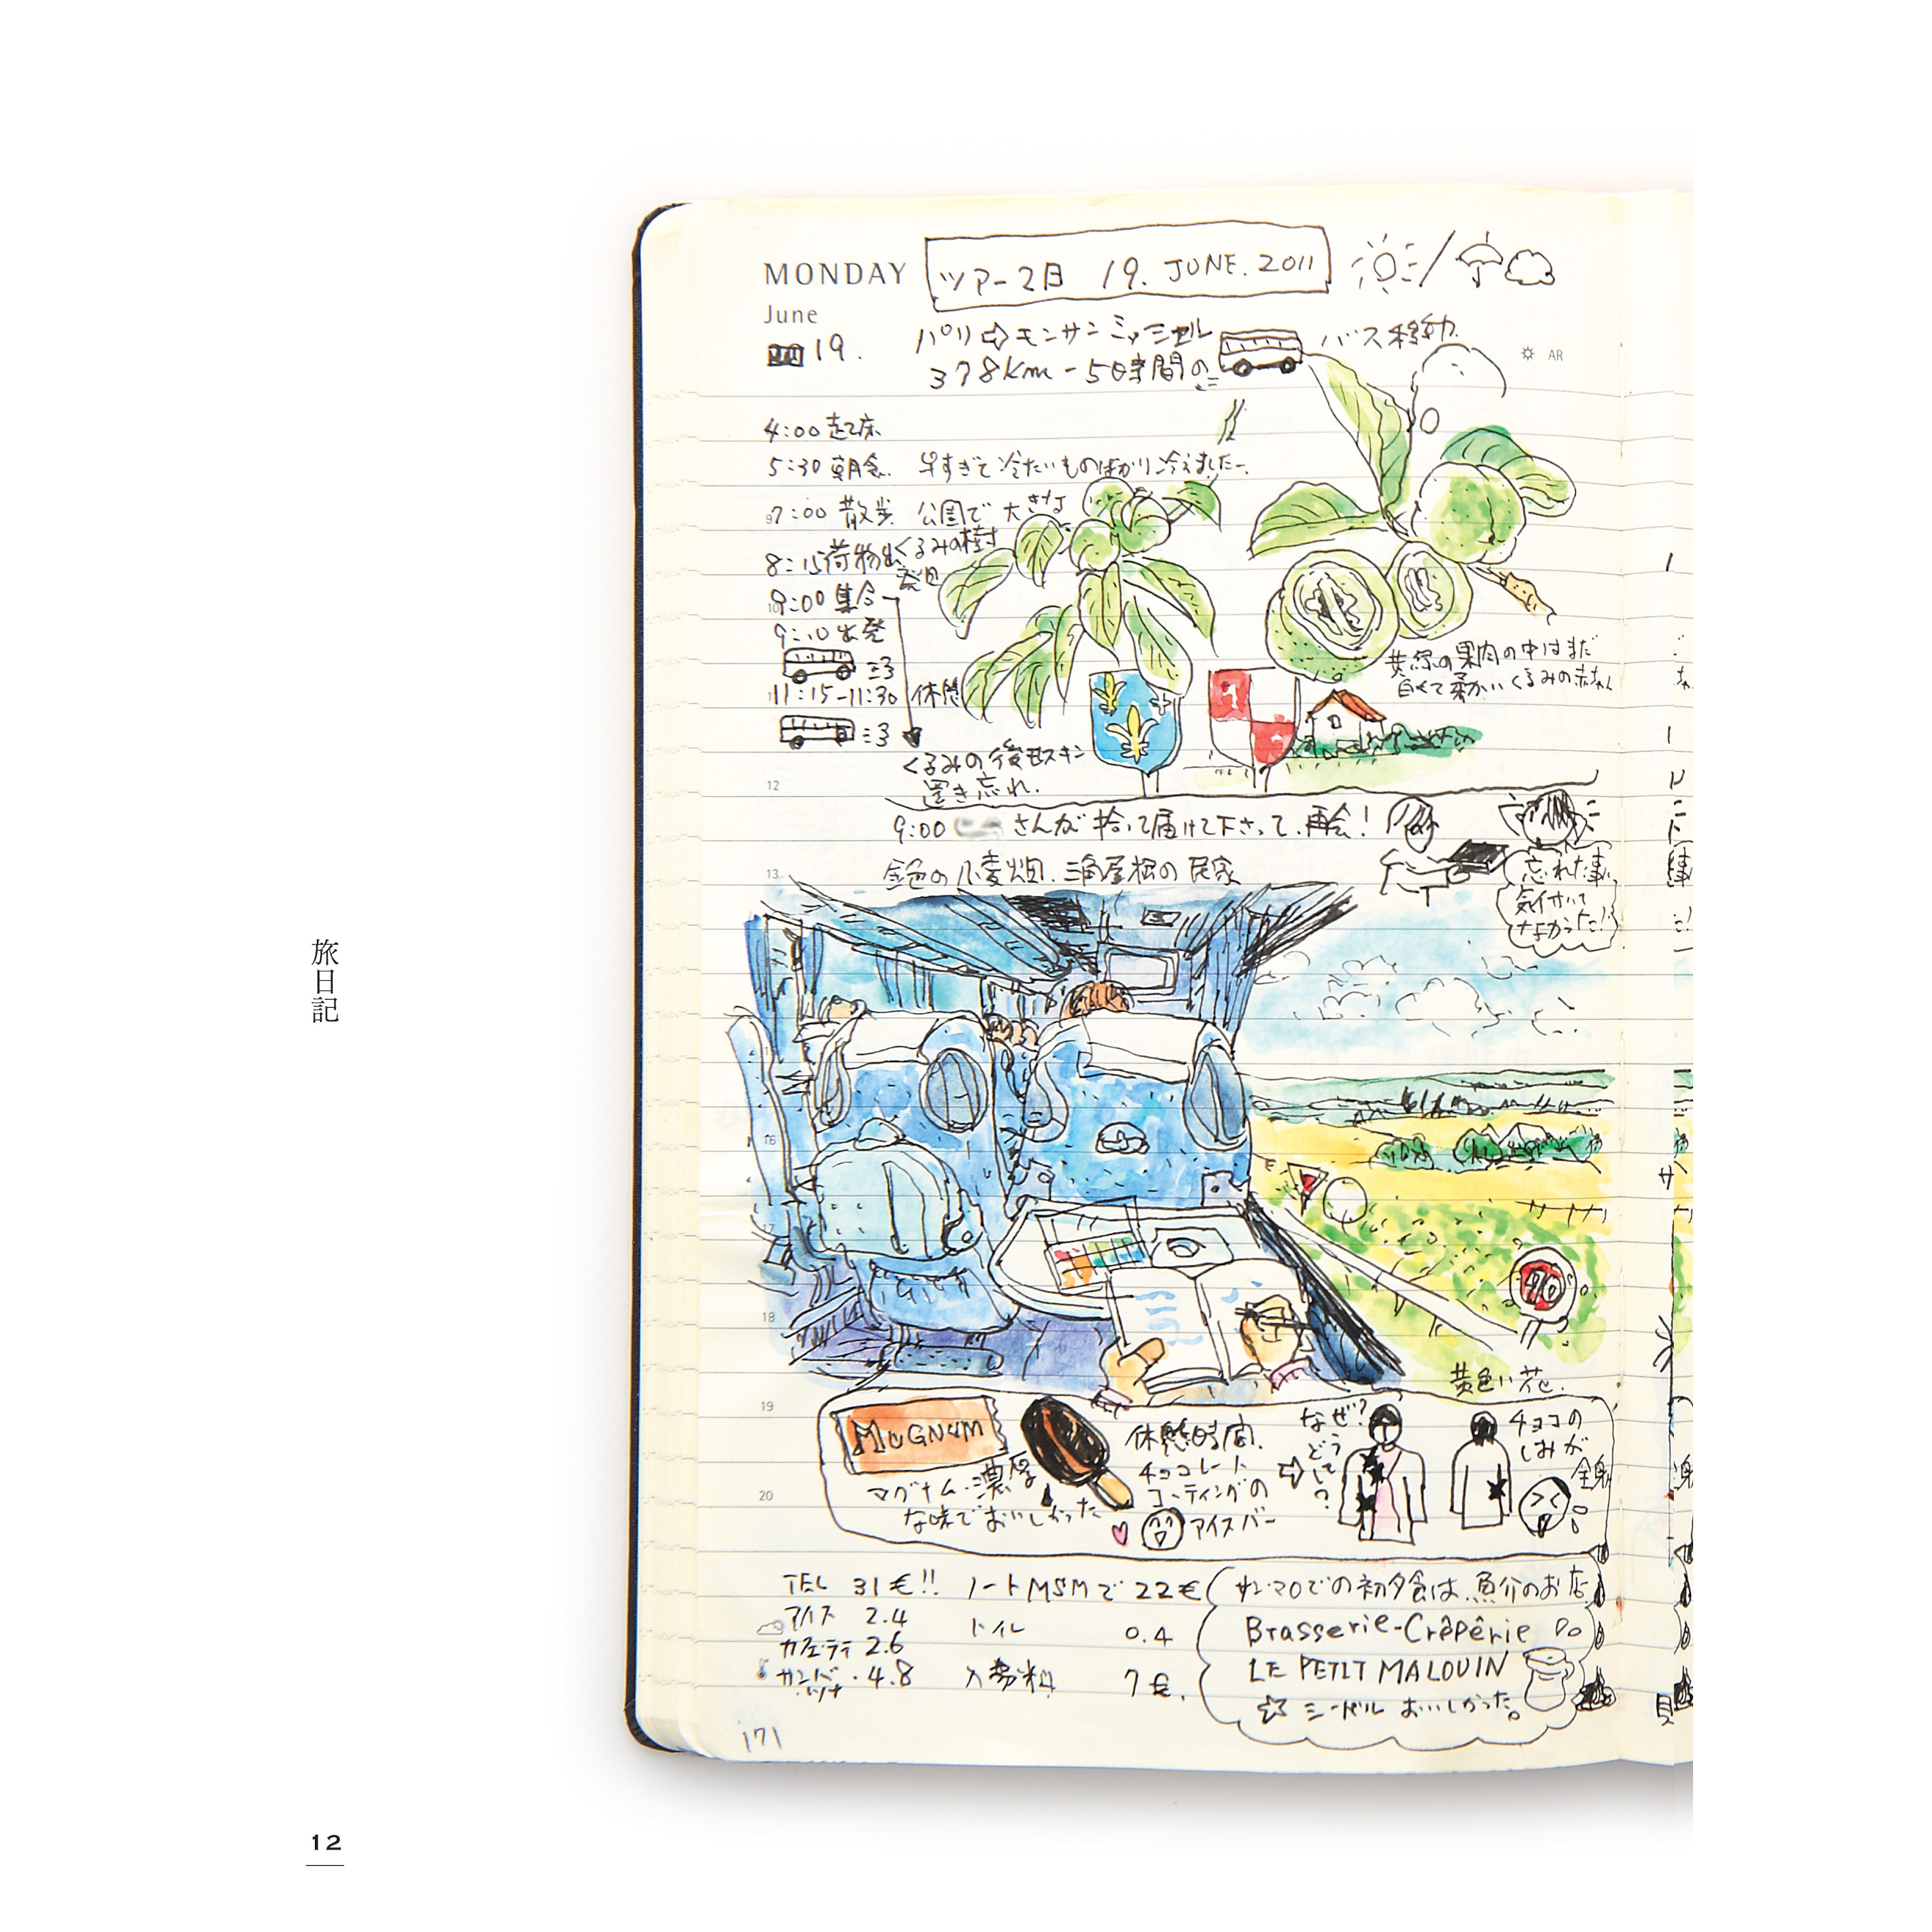 MONDAY
ツアー2日 19. JUNE. 2011
June
19.
パリ⇨モンサンミッシェル
バス移動
378km-5時間の
AR
4:00 起床
5:30 朝食 早すぎて冷たいものばかり冷えましたー、
9
7:00 散歩 公園で大きな
くるみの樹
発見
8:15 荷物出
10
9:00 集合
9:10 出発
11:15-11:30 休憩
黄緑の果肉の中はまだ
白くて柔かいくるみの赤ちゃん
くるみの後モスキン
置き忘れ.
12
9:00 さんが拾って届けて下さって、再会!
金色の小麦畑、三角屋根の民家
忘れた事に
気付いて
なかった!?
13
16
17
18
90
黄色い花.
19
MAGNUM
マグナム・濃厚
な味でおいしかった
休憩時間.
チョコレート
コーティングの
アイスバー
なぜ?
どうして?
チョコの
しみが
全身
20
TEL 31€!! ノートMSMで 22€
アイス 2.4 トイレ 0.4
カフェ・ラテ 2.6
4.8 入場料 7€.
サン・マロでの初夕食は、魚介のお店
Brasserie-Crêpêrie
LE PETIT MALOUIN
☆ シードル おいしかった。
171
旅日記
12